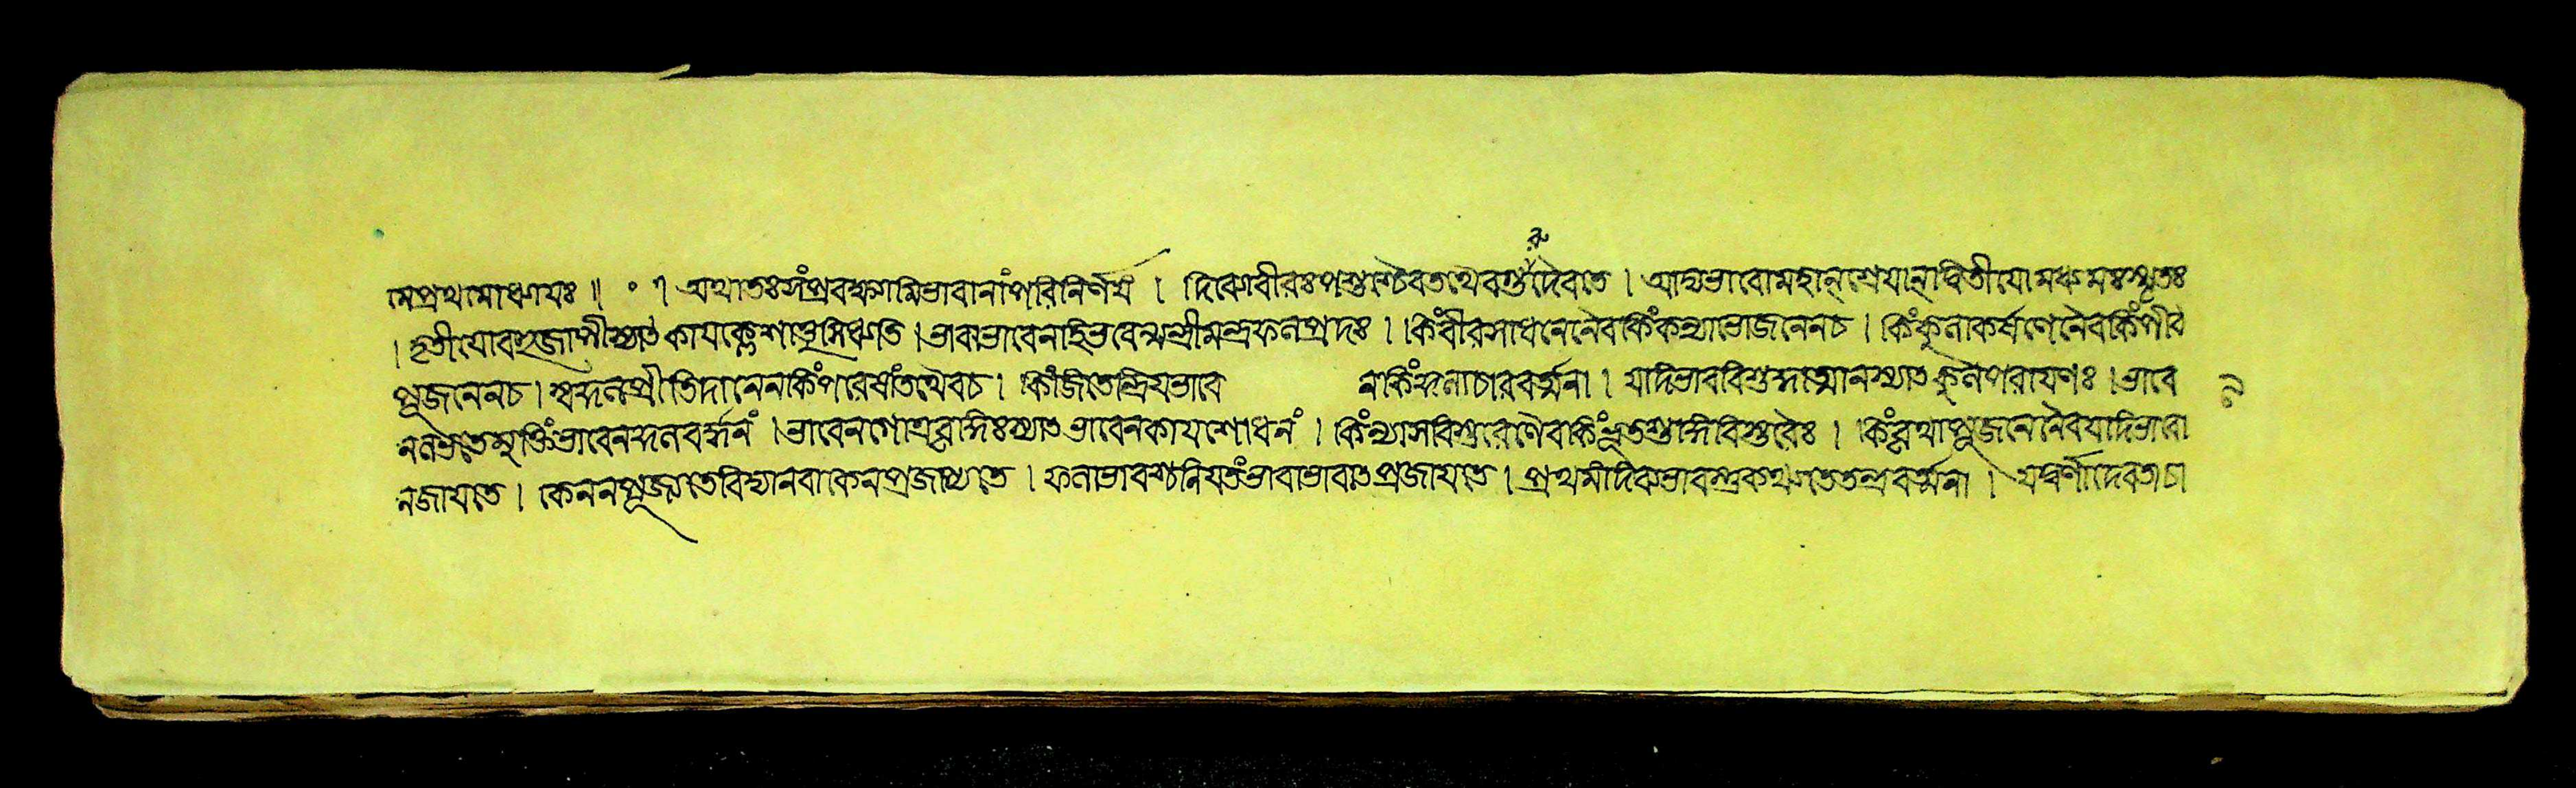 মেপ্রথমোধ্যাযঃ॥ ॰ ৭ অথাতঃসংপ্রবক্ষ্যামিভাবানাংপরিনির্ণযং । দিব্যোবীরঃপশুশ্চৈবতথৈবগুরুদৈবতে । আদ্যভাবোমহান্শ্রেযান্দ্বিতীযোমধ্যমঃস্মৃতঃ
। তৃতীযোবহুজাপীস্যাৎকাযক্লেশাদ্ধিসিধ্যতি । ভাবাভাবেনাহিভবেন্মন্ত্রীমন্ত্রফলপ্রদঃ । কিংবীরসাধনেনৈবকিংকন্যাভোজনেনচ । কিংকুলাকর্ষণেনৈবকিংপীঠ
পূজনেনচ । স্বকুলপ্রীতিদানেনকিংপরেষাংতথৈবচ । কিংজিতেন্দ্রিযভাবে নকিংকুলাচারবর্ত্মনা । যদিভাববিশুদ্ধাত্মানস্যাৎকুলপরাযণঃ । ভাবে
নলভ্যতেমুক্তিংভাবেনকুলবর্দ্ধনং । ভাবেনগোত্রবৃদ্ধিঃস্যাৎভাবেনকাযশোধনং । কিংন্যাসবিস্তরেণৈবকিংভূতশুদ্ধিবিস্তরৈঃ । কিংবৃথাপূজনেনৈবযদিভাবো
নজাযতে । কেনবপূজ্যতেবিদ্যানবাকেনপ্রজাপ্যতে । ফলাভাবশ্চনিযতংভাবাভাবাৎপ্রজাযতে । প্রথমংদিব্যভাবন্তুকথ্যতেতন্ত্রবর্ত্মনা । যদ্বর্ণাদেবতাচা